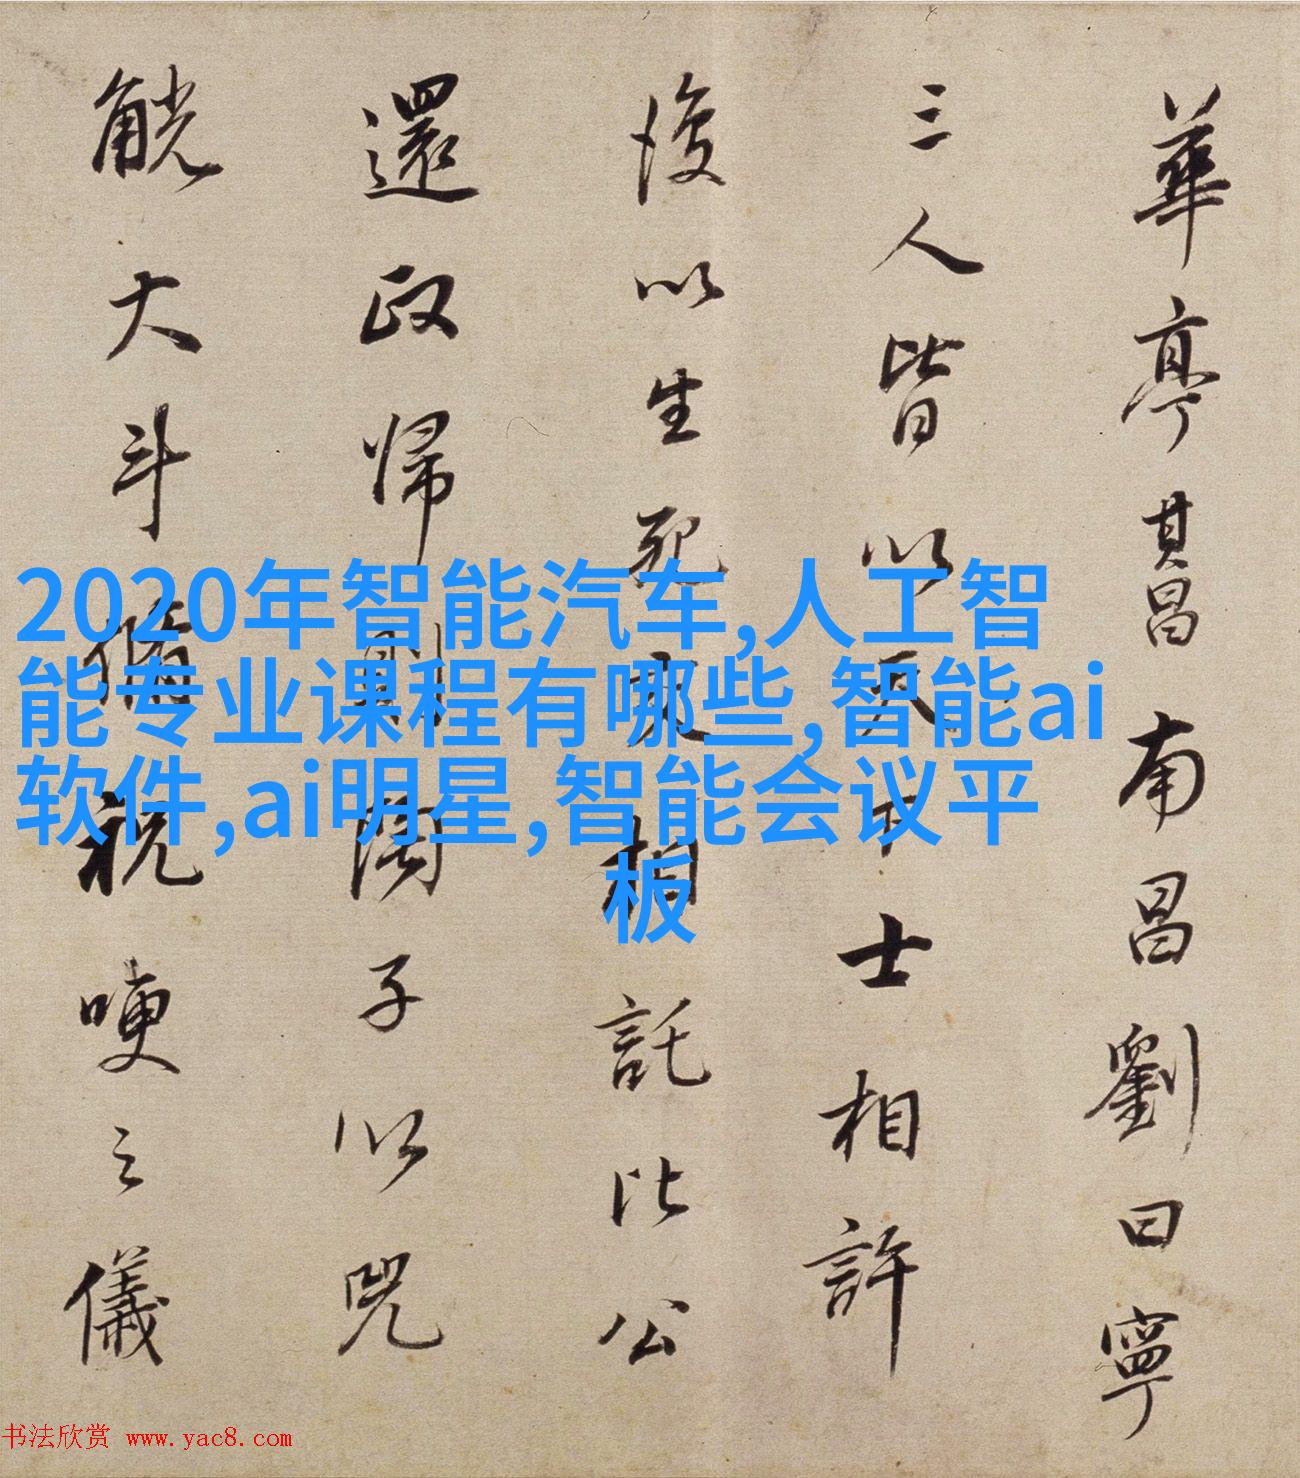 華亭其昌南昌劉曰寧
三人皆以天下士相許
後以生死交相託比公
還政歸則陶子以兕
觥大斗脩祝哽之儀
2020年智能汽车,人工智
能专业课程有哪些,智能ai
软件,ai明星,智能会议平
板
书法欣赏 www.yac8.com